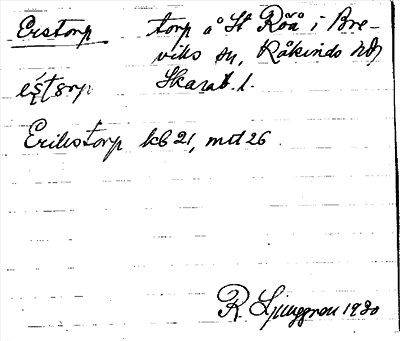 Erstorp torp å St Röå i Bre-
viks sn, Kåkinds hd,
Skarab. l.
Erikstorp kb 21, mtl 26
R. Ljunggren 1930